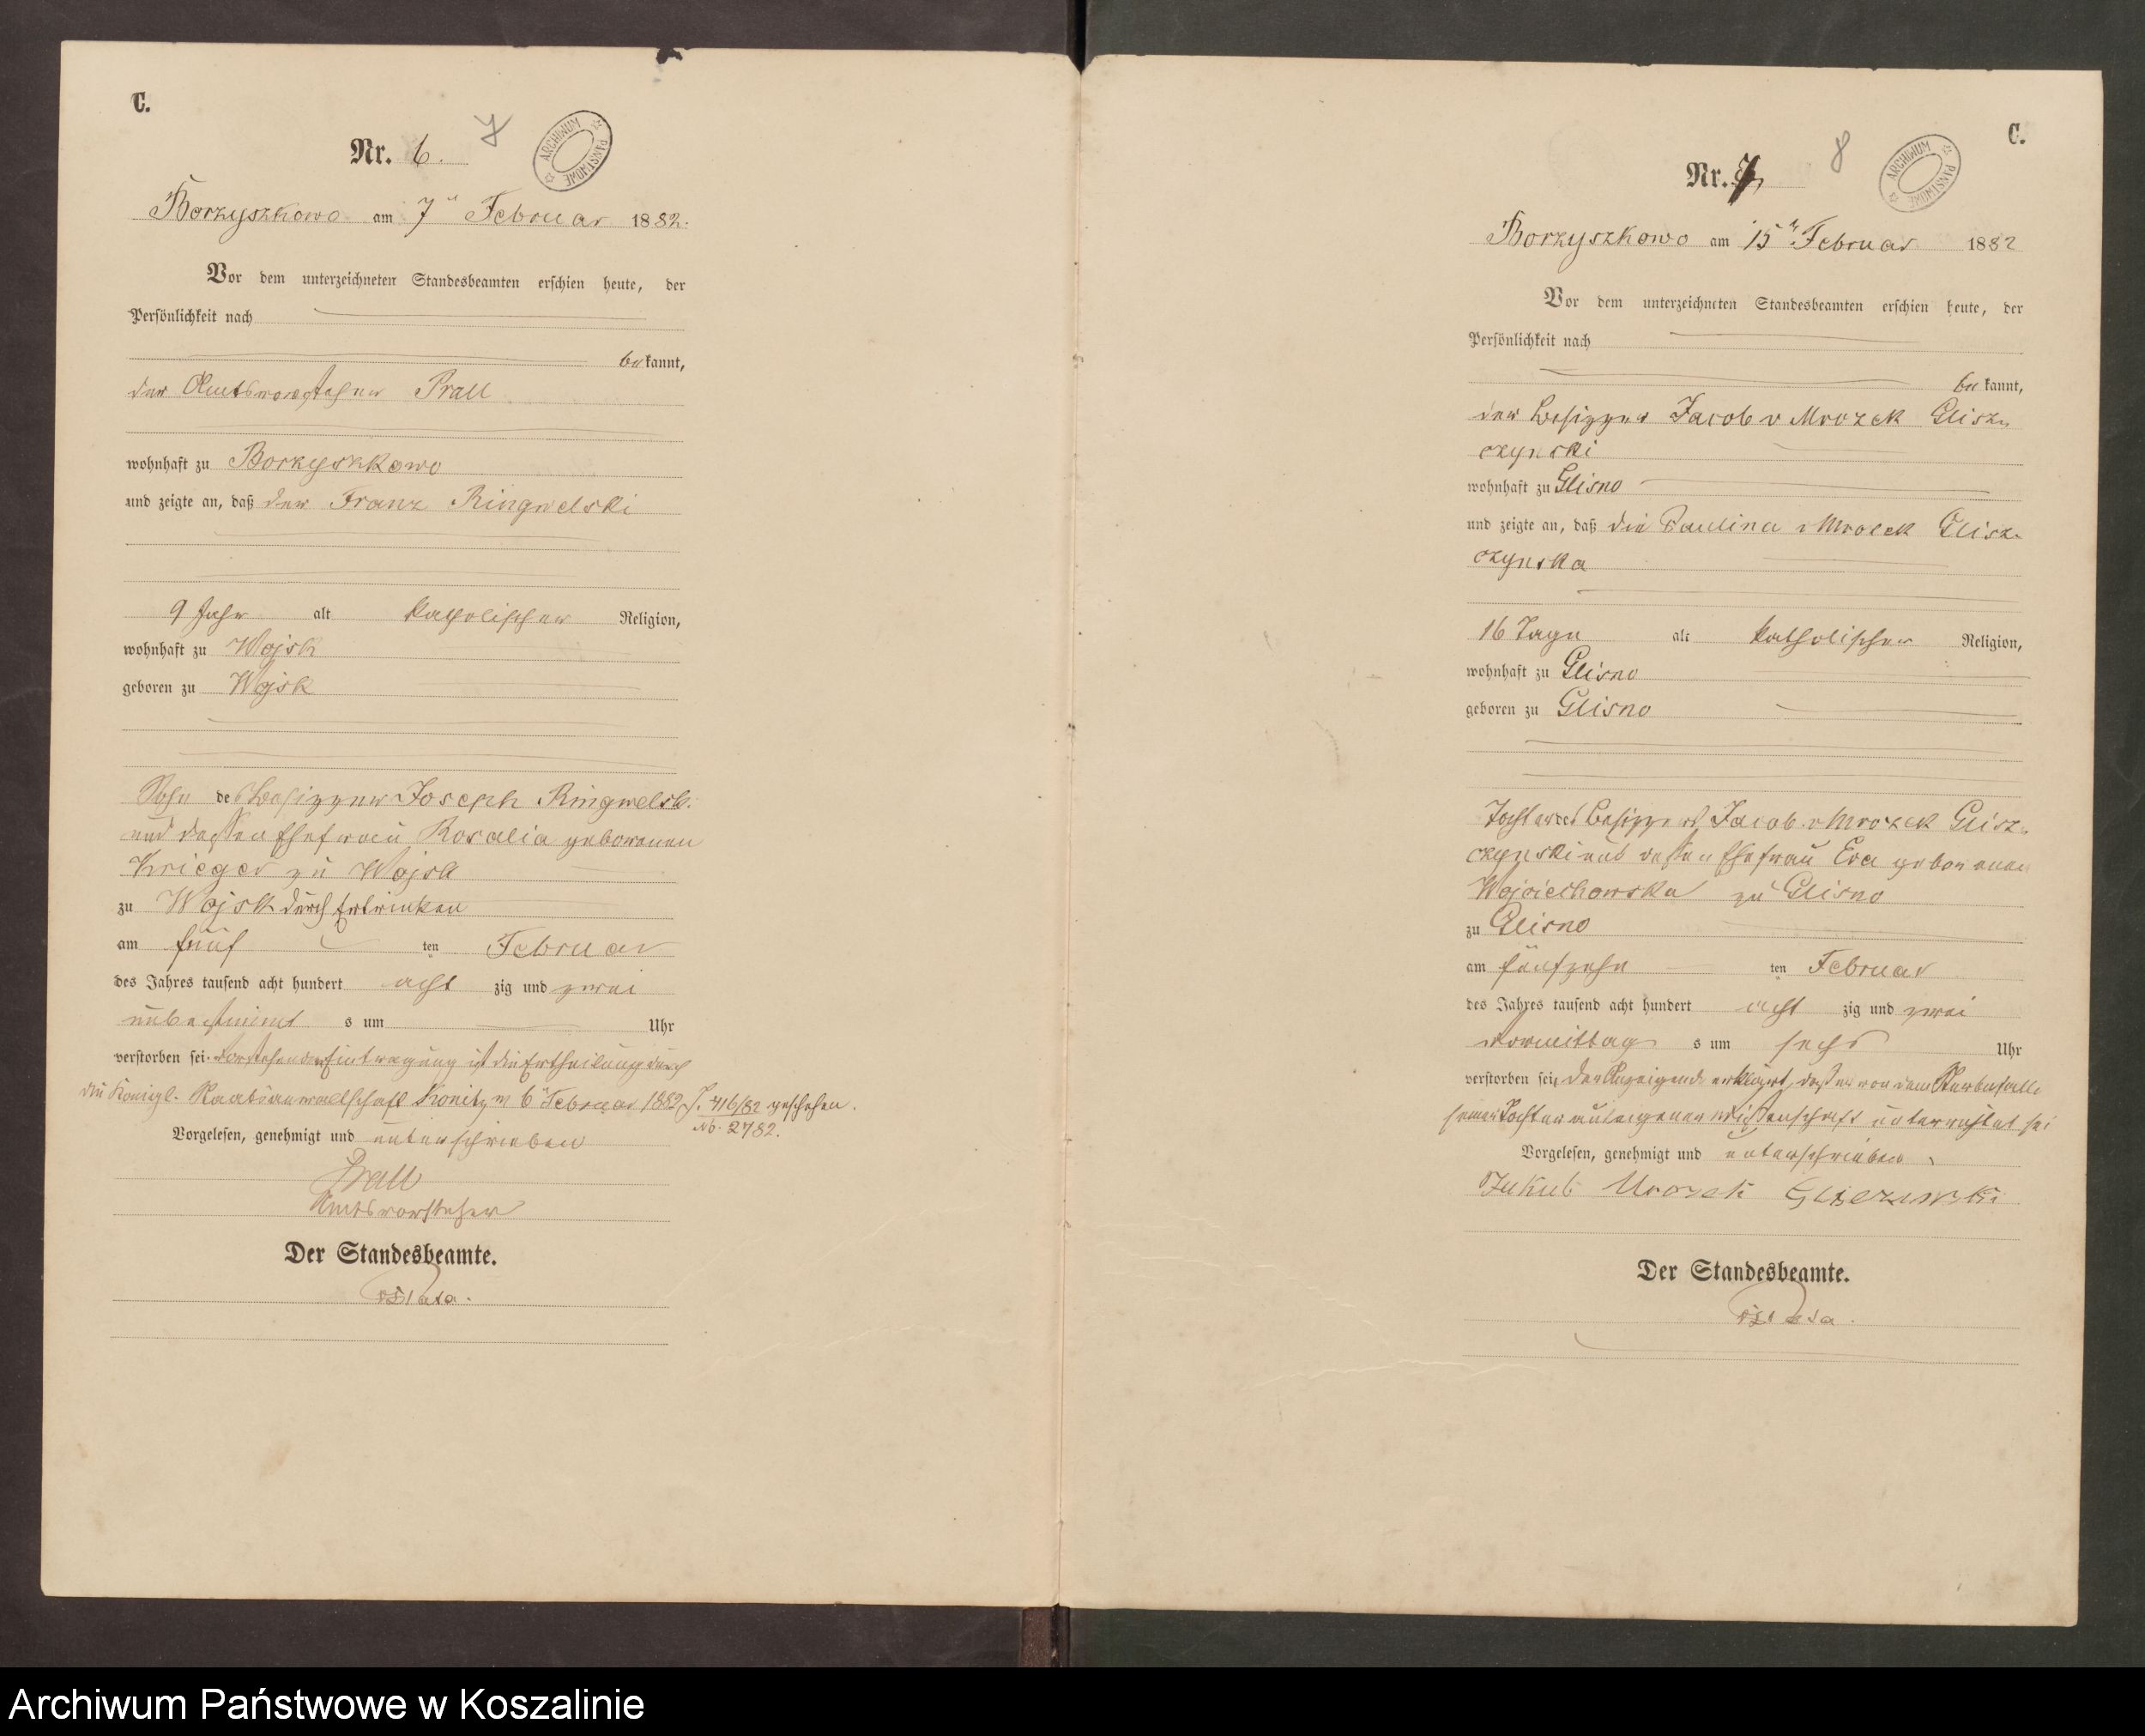 C.
Nr. 6.
7
ARCHIWUM PAŃSTWOWE
Borzyszkowo am 7ten Februar 1882.
Vor dem unterzeichneten Standesbeamten erschien heute, der
Persönlichkeit nach
bekannt,
der Amtsvorsteher Prall
wohnhaft zu Borzyszkowo
und zeigte an, daß der Franz Ringwelski
9 Jahr alt katholischer Religion,
wohnhaft zu Wojsk
geboren zu Wojsk
Sohn des Besitzer Joseph Ringwelski
und dessen Ehefrau Rosalia geborenen
Krieger zu Wojsk
zu Wojsk durch Ertrinken
am fünf ten Februar
des Jahres tausend acht hundert acht zig und zwei
unbestimmt s um Uhr
verstorben sei. Vorstehender Eintragung ist die Ertheilung durch
die Königl. Staatsanwaltschaft Konitz v. 6ten Februar 1882 J. 416/82 geschehen.
No. 2782.
Vorgelesen, genehmigt und unterschrieben
Prall
Amtsvorsteher
Der Standesbeamte.
C.
Nr. 7
8
ARCHIWUM PAŃSTWOWE
Borzyszkowo am 15ten Februar 1882
Vor dem unterzeichneten Standesbeamten erschien heute, der
Persönlichkeit nach
bekannt,
der Besitzer Jacob v Mrozek Glisz-
czynski
wohnhaft zu Glisno
und zeigte an, daß die Paulina v Mrozek Glisz-
czynska
16 Tage alt katholischer Religion,
wohnhaft zu Glisno
geboren zu Glisno
Tochter des Besitzers Jacob v Mrozek Glisz-
czynski und dessen Ehefrau Eva geborenen
Wojciechowska zu Glisno
zu Glisno
am fünfzehn ten Februar
des Jahres tausend acht hundert acht zig und zwei
Vormittag s um sechs Uhr
verstorben sei, der Anzeigende erklärt, daß er von dem Sterbefalle
seiner Tochter aus eigener Wissenschaft unterrichtet sei
Vorgelesen, genehmigt und unterschrieben
Jakub Mrozek Gliszczynski
Der Standesbeamte.
Archiwum Państwowe w Koszalinie